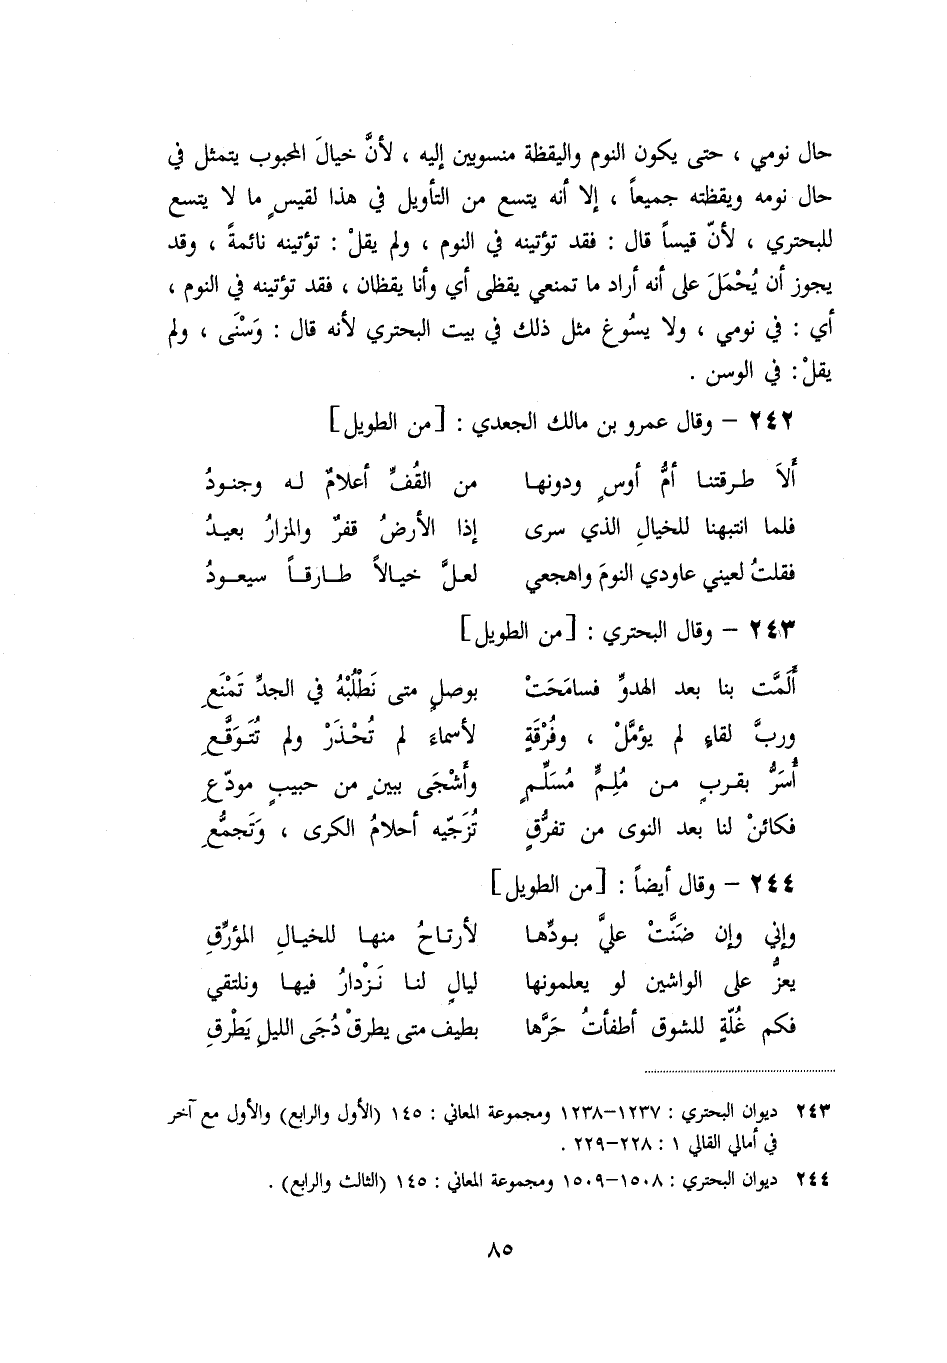 حال نومي ، حتى يكون النوم واليقظة منسوبين إليه ، لأنَّ خيالَ المحبوب يتمثل في
حال نومه ويقظته جميعاً ، إلا أنه يتسع من التأويل في هذا لقيسٍ ما لا يتسع
للبحتري ، لأنّ قيساً قال : فقد تؤتينه في النوم ، ولم يقلْ : تؤتينه نائمةً ، وقد
يجوز أن يُحْمَلَ على أنه أراد ما تمنعي يقظى أي وأنا يقظان ، فقد تؤتينه في النوم ،
أي : في نومي ، ولا يسُوغ مثل ذلك في بيت البحتري لأنه قال : وَسْنَى ، ولم
يقلْ : في الوسن .
٢٤٢ – وقال عمرو بن مالك الجعدي : [من الطويل]
أَلاَ طـرقتنـا أمُّ أوسٍ ودونهـا من القُفِّ أعلامٌ لـه وجنـودُ
فلما انتبهنا للخيالِ الذي سرى إذا الأرضُ قفرٌ والمزارُ بعيـدُ
فقلتُ لعيني عاودي النومَ واهجعي لعـلَّ خيـالاً طـارقـاً سيعـودُ
٢٤٣ – وقال البحتري : [من الطويل]
أَلَمَّت بنا بعد الهدوِّ فسامَحَتْ بوصلٍ متى نَطْلُبْهُ في الجدِّ تَمْنَعِ
وربَّ لقاءٍ لم يؤمَّلْ ، وفُرْقَةٍ لأسماءَ لم تُحْـذَرْ ولم تُتَـوَقَّـعِ
أُسَرُّ بقـربٍ مـن مُلِـمٍّ مُسَلِّـمٍ وأَشْجَى ببينٍ من حبيبٍ مودّعِ
فكائنْ لنا بعد النوى من تفرُّقٍ تُزَجّيه أحلامُ الكرى ، وَتَجمُّعِ
٢٤٤ – وقال أيضاً : [من الطويل]
وإني وإن ضَنَّتْ عليَّ بـودِّهـا لأرتـاحُ منهـا للخيـالِ المؤرِّقِ
يعزُّ على الواشين لو يعلمونها ليالٍ لنـا نَـزْدارُ فيهـا ونلتقي
فكم غُلّةٍ للشوق أطفأتُ حَرَّها بطيف متى يطرقْ دُجَى الليلِ يَطْرقِ
٢٤٣ ديوان البحتري : ١٢٣٧–١٢٣٨ ومجموعة المعاني : ١٤٥ (الأول والرابع) والأول مع آخر
في أمالي القالي ١ : ٢٢٨–٢٢٩ .
٢٤٤ ديوان البحتري : ١٥٠٨–١٥٠٩ ومجموعة المعاني : ١٤٥ (الثالث والرابع) .
٨٥